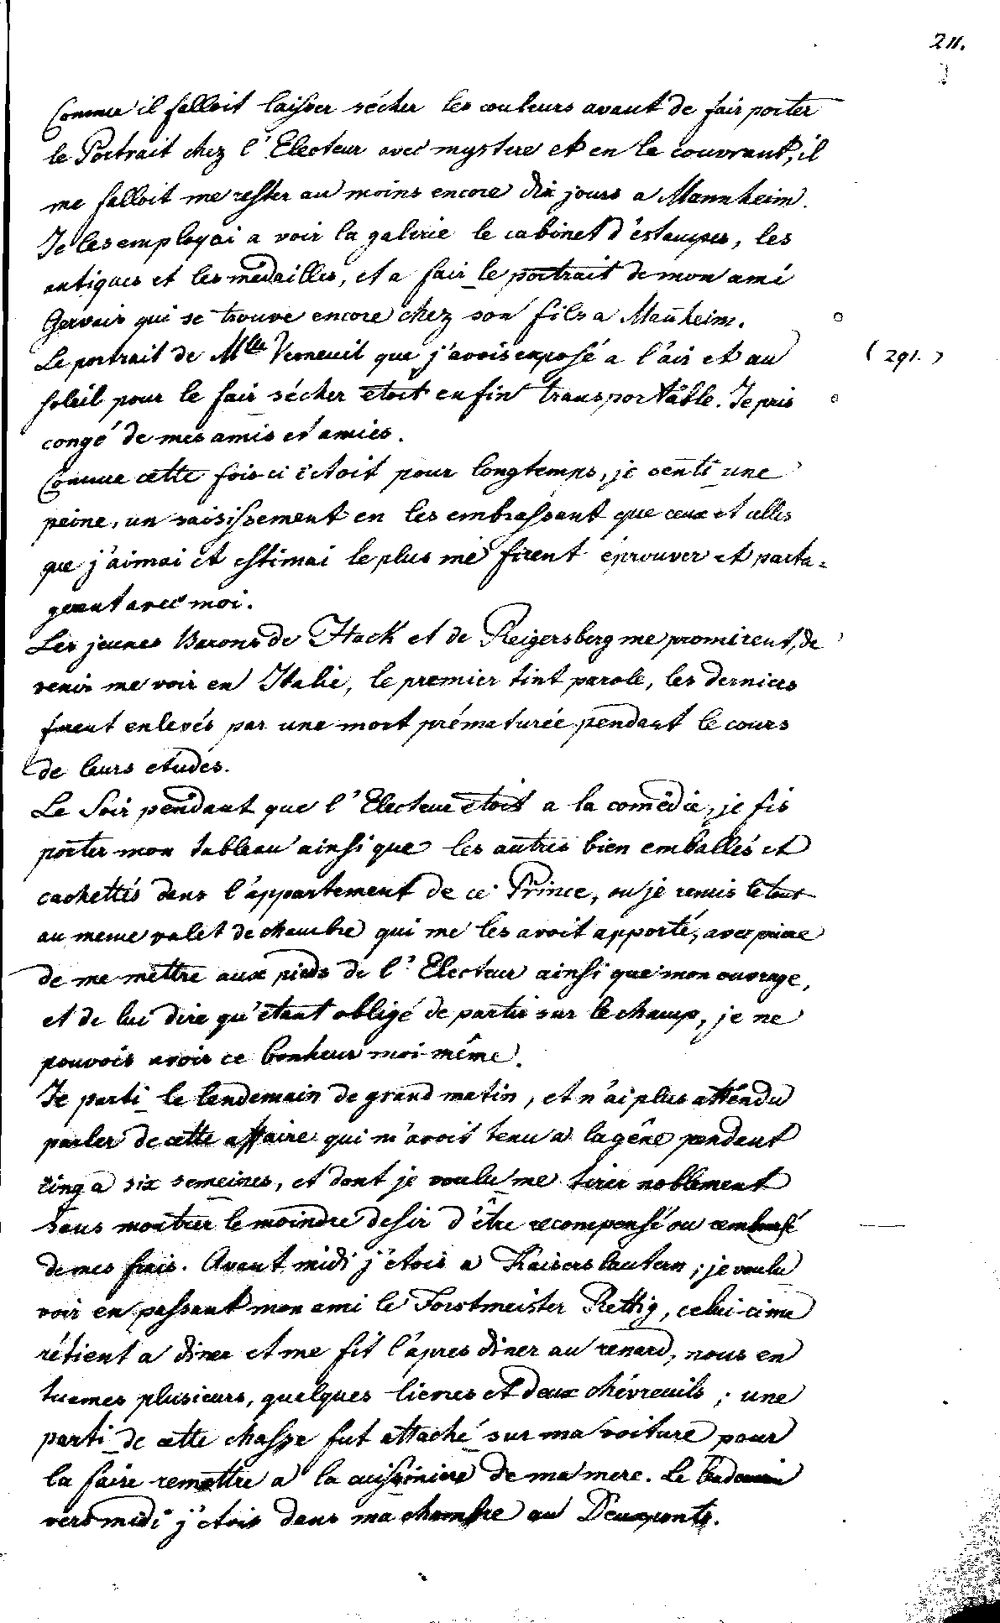 211.
Comme il falloit laisser sécher les couleurs avant de fair porter
le Portrait chez l'Electeur avec mystere et en le couvrant, il
me falloit me rester au moins encore dix jours a Mannheim.
Je les employai a voir la galerie le cabinet d'éstampes, les
antiques et les médailles, et a fair le portrait de mon ami
Gervais qui se trouve encore chez son fils a Man̄heim.
Le portrait de Mlle Verneuil que j'avois exposé a l'air et au
(291.)
soleil pour le fair sécher etoit enfin transportable. Je pris
congé de mes amis et amies.
Comme cette fois ci c'etoit pour longtemps, je senti une
peine, un saisissement en les embrassant que ceux et celles
que j'aimai et estimai le plus me firent éprouver et parta=
gerent avec moi.
Les jeunes Barons de Hack et de Reigersberg me promirent, de
venir me voir en Italie, le premier tint parole, les derniers
furent enlevés par une mort prématurée pendant le cours
de leurs etudes.
Le Soir pendant que l'Electeur etoit a la comédie, je fis
porter mon tableau ainsi que les autres bien emballés et
cachettés dans l'appartement de ce Prince, ou je remis le tout
au meme valet de chambre qui me les avoit apporté, avec priere
de me mettre aux pieds de l'Electeur ainsi que mon ouvrage,
et de lui dire qu'étant obligé de partir sur le champ, je ne
pouvois avoir ce bonheur moi-même.
Je parti le lendemain de grand matin, et n'ai plus attendu
parler de cette affaire qui m'avoit tenu a la gêne pendant
cinq a six semeines, et dont je voulu me tirer noblement
sans montrer le moindre desir d'être recompensé ou remboursé
de mes frais. Avant midi j'étois a Kaiserslautern; je voulu
voir en passant mon ami le Forstmeister Rettig, celui-ci me
rétient a diner et me fit l'àpres diner au renard, nous en
tuames plusieurs, quelques lievres et deux chévreuils; une
parti de cette chasse fut attaché sur ma voiture pour
la faire remettre a la cuisiniere de ma mere. Le lendemain
vers midi j'étois dans ma chambre au Deuxponts.